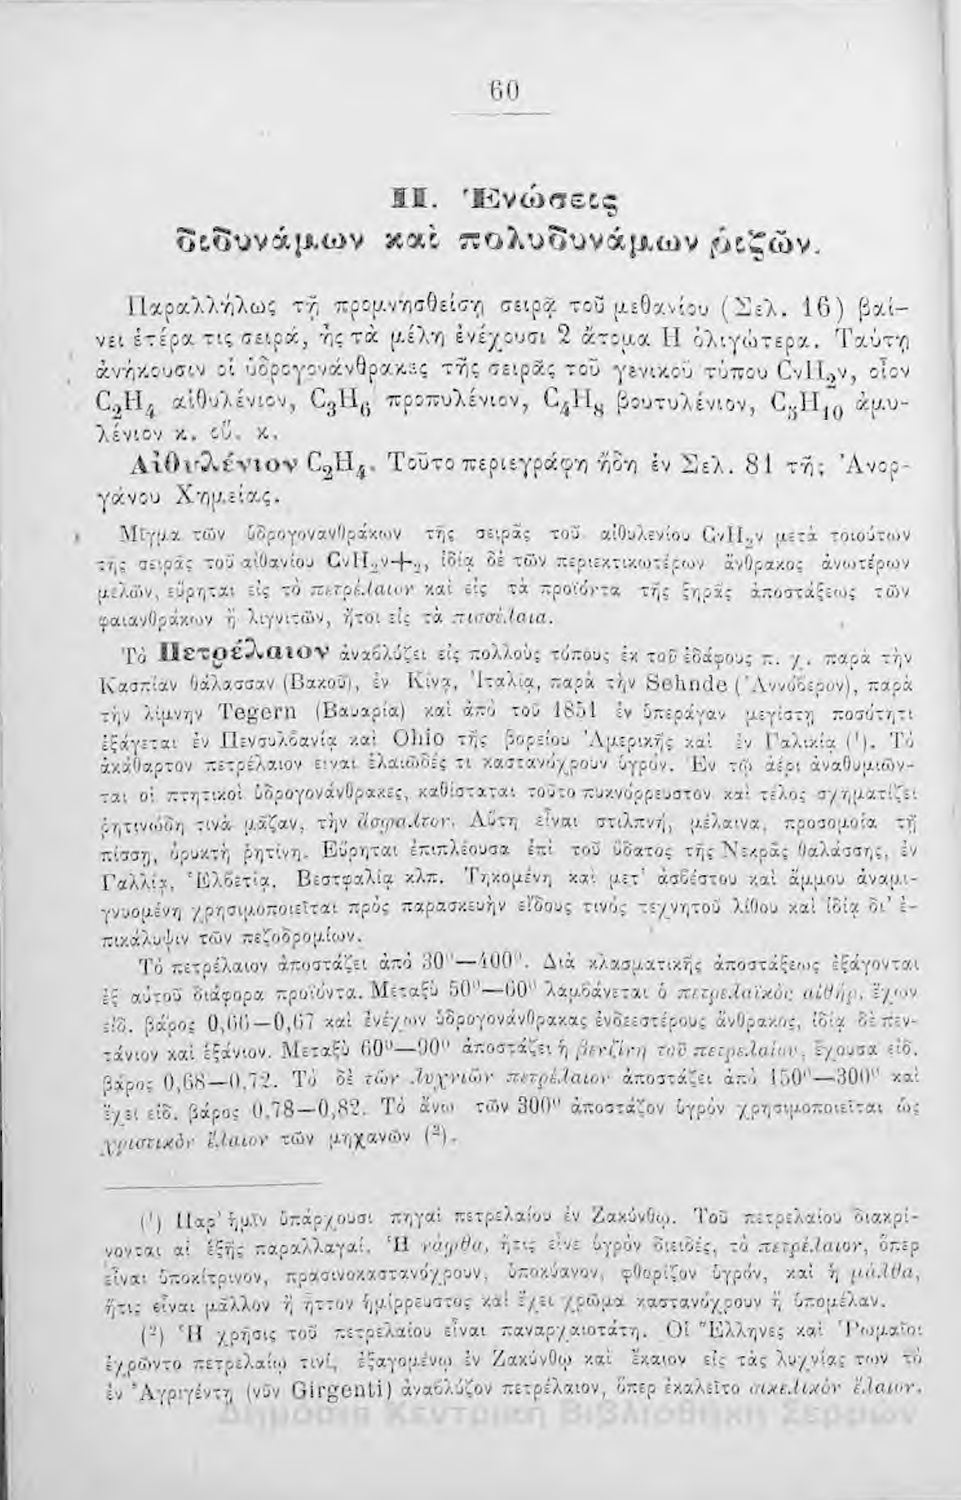 60
II. Ἑνώσεις
διδυνάμων καὶ πολυδυνάμων ῥιζῶν.
Παραλλήλως τῇ προμνησθείσῃ σειρᾷ τοῦ μεθανίου (Σελ. 16) βαί-
νει ἑτέρα τις σειρά, ἧς τὰ μέλη ἐνέχουσι 2 ἄτομα Η ὀλιγώτερα. Ταύτῃ
ἀνήκουσιν οἱ ὑδρογονάνθρακες τῆς σειρᾶς τοῦ γενικοῦ τύπου CνH₂ν, οἷον
C₂H₄ αἰθυλένιον, C₃H₆ προπυλένιον, C₄H₈ βουτυλένιον, C₅H₁₀ ἀμυ-
λένιον κ. οὕ. κ.
Αἰθυλένιον C₂H₄. Τοῦτο περιεγράφη ἤδη ἐν Σελ. 81 τῆς Ἀνορ-
γάνου Χημείας.
Μῖγμα τῶν ὑδρογονανθράκων τῆς σειρᾶς τοῦ αἰθυλενίου CνH₂ν μετὰ τοιούτων
τῆς σειρᾶς τοῦ αἰθανίου CνH₂ν+₂, ἰδίᾳ δὲ τῶν περιεκτικωτέρων ἄνθρακος ἀνωτέρων
μελῶν, εὕρηται εἰς τὸ πετρέλαιον καὶ εἰς τὰ προϊόντα τῆς ξηρᾶς ἀποστάξεως τῶν
φαιανθράκων ἢ λιγνιτῶν, ἤτοι εἰς τὰ πισσέλαια.
Τὸ Πετρέλαιον ἀναβλύζει εἰς πολλοὺς τόπους ἐκ τοῦ ἐδάφους π. χ. παρὰ τὴν
Κασπίαν θάλασσαν (Βακοῦ), ἐν Κίνᾳ, Ἰταλίᾳ, παρὰ τὴν Sehnde (Ἀννόβερον), παρὰ
τὴν λίμνην Tegern (Βαυαρία) καὶ ἀπὸ τοῦ 1851 ἐν ὑπεράγαν μεγίστῃ ποσότητι
ἐξάγεται ἐν Πενσυλβανίᾳ καὶ Ohio τῆς βορείου Ἀμερικῆς καὶ ἐν Γαλικίᾳ (¹). Τὸ
ἀκάθαρτον πετρέλαιον εἶναι ἐλαιῶδές τι καστανόχρουν ὑγρόν. Ἐν τῷ ἀέρι ἀναθυμιῶν-
ται οἱ πτητικοὶ ὑδρογονάνθρακες, καθίσταται τοῦτο πυκνόρρευστον καὶ τέλος σχηματίζει
ῥητινώδη τινὰ μᾶζαν, τὴν ἄσφαλτον. Αὕτη εἶναι στιλπνή, μέλαινα, προσομοία τῇ
πίσσῃ, ὀρυκτὴ ῥητίνη. Εὕρηται ἐπιπλέουσα ἐπὶ τοῦ ὕδατος τῆς Νεκρᾶς θαλάσσης, ἐν
Γαλλίᾳ, Ἑλβετίᾳ, Βεστφαλίᾳ κλπ. Τηκομένη καὶ μετ' ἀσβέστου καὶ ἄμμου ἀναμι-
γνυομένη χρησιμοποιεῖται πρὸς παρασκευὴν εἴδους τινὸς τεχνητοῦ λίθου καὶ ἰδίᾳ δι' ἐ-
πικάλυψιν τῶν πεζοδρομίων.
Τὸ πετρέλαιον ἀποστάζει ἀπὸ 30⁰—400⁰. Διὰ κλασματικῆς ἀποστάξεως ἐξάγονται
ἐξ αὐτοῦ διάφορα προϊόντα. Μεταξὺ 50⁰—60⁰ λαμβάνεται ὁ πετρελαϊκὸς αἰθήρ, ἔχων
εἰδ. βάρος 0,66—0,67 καὶ ἐνέχων ὑδρογονάνθρακας ἐνδεεστέρους ἄνθρακος, ἰδίᾳ δὲ πεν-
τάνιον καὶ ἑξάνιον. Μεταξὺ 60⁰—90⁰ ἀποστάζει ἡ βενζίνη τοῦ πετρελαίου, ἔχουσα εἰδ.
βάρος 0,68—0,72. Τὸ δὲ τῶν λυχνιῶν πετρέλαιον ἀποστάζει ἀπὸ 150⁰—300⁰ καὶ
ἔχει εἰδ. βάρος 0,78—0,82. Τὸ ἄνω τῶν 300⁰ ἀποστάζον ὑγρὸν χρησιμοποιεῖται ὡς
χριστικὸν ἔλαιον τῶν μηχανῶν (²).
(¹) Παρ' ἡμῖν ὑπάρχουσι πηγαὶ πετρελαίου ἐν Ζακύνθῳ. Τοῦ πετρελαίου διακρί-
νονται αἱ ἑξῆς παραλλαγαί. Ἡ νάφθα, ἥτις εἶνε ὑγρὸν διειδές, τὸ πετρέλαιον, ὅπερ
εἶναι ὑποκίτρινον, πρασινοκαστανόχρουν, ὑποκύανον, φθορίζον ὑγρόν, καὶ ἡ μάλθα,
ἥτις εἶναι μᾶλλον ἢ ἧττον ἡμίρρευστος καὶ ἔχει χρῶμα καστανόχρουν ἢ ὑπομέλαν.
(²) Ἡ χρῆσις τοῦ πετρελαίου εἶναι παναρχαιοτάτη. Οἱ Ἕλληνες καὶ Ῥωμαῖοι
ἐχρῶντο πετρελαίῳ τινί, ἐξαγομένῳ ἐν Ζακύνθῳ καὶ ἔκαιον εἰς τὰς λυχνίας των τὸ
ἐν Ἀγριγέντῃ (νῦν Girgenti) ἀναβλύζον πετρέλαιον, ὅπερ ἐκαλεῖτο σικελικὸν ἔλαιον.
Δημόσια Κεντρική Βιβλιοθήκη Σερρών